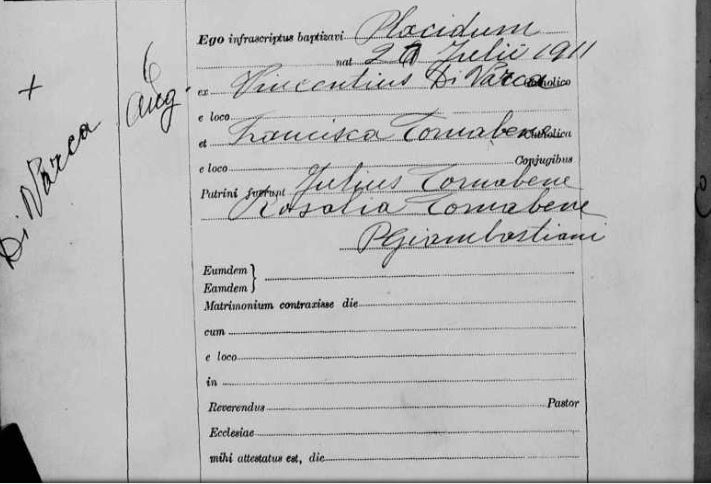 +
Di Varca
6
Aug.
Ego infrascriptus baptizavi Placidum
nat 20 Julii 1911
ex Vincentius Di Varca Catholico
e loco
et Francisca Tornabene Catholica
e loco Conjugibus
Patrini fuerunt Julius Tornabene
Rosalia Tornabene
P Giambastiani
Eumdem }
Eamdem }
Matrimonium contraxisse die
cum
e loco
in
Reverendus Pastor
Ecclesiae
mihi attestatus est, die